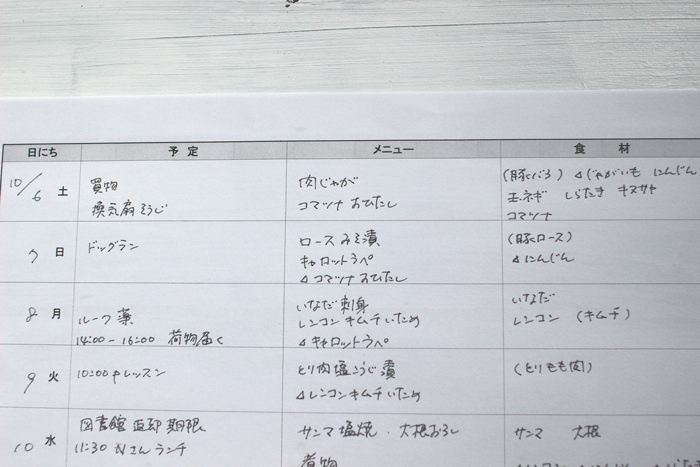 日にち 予定 メニュー 食材
10/6 土 買物 肉じゃが (豚こま) △じゃがいも にんじん
換気扇そうじ コマツナ おひたし 玉ネギ しらたき キヌサヤ
コマツナ
7 日 ドッグラン ロースみそ漬 (豚ロース)
キャロットラペ △にんじん
△コマツナおひたし
8 月 ルーフ薬 いなだ刺身 いなだ
14:00-16:00 荷物届く レンコンキムチいため レンコン (キムチ)
△キャロットラペ
9 火 10:00 レッスン とり肉塩こうじ漬 (とりもも肉)
△レンコンキムチいため
10 水 図書館 返却期限 サンマ塩焼・大根おろし サンマ 大根
11:30 Nさんランチ 煮物